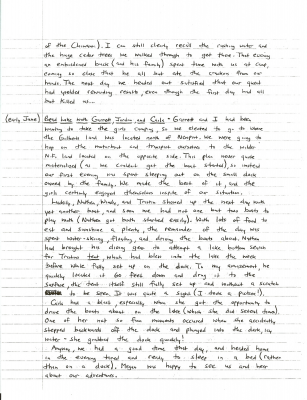 of the Chinook). I can still clearly recall the rushing water and
the huge cedar trees we walked through to get there. That evening
an emboldened buck (and his family) spent time with us at camp,
coming so close that he all but ate the crackers from our
hands. The next day we headed out satisfied that our quest
had yielded rewarding results, even though the first day had all
but killed us...
(early June) Bead Lake with Garrett, Jordan, and Carla - Garrett and I had been
wanting to take the girls camping, so we elected to go to where
the Gullands land was located north of Newport. We were going to
hop on the motorboat and transport ourselves to the wilder
N.F. land located on the opposite side. This plan never quite
materialized (as we couldn't get the boat started), so instead
our first evening was spent sleeping out on the small dock
owned by the family. We made the best of it, and the
girls certainly enjoyed themselves inside of our situation.
Luckily, Nathan, Mindy, and Tristan showed up the next day with
yet another boat, and soon we had not one but two boats to
play with (Nathan got both started easily). With lots of food to
eat and sunshine a plenty, the remainder of the day was
spent water-skiing, floating, and driving the boats about. Nathan
had brought his diving gear to attempt a
for Tristan's tent, which had blown into the lake the week
before while fully set up on the dock. To my amazement, he
quickly located it 60 feet down and drug it to the
surface, the tent itself still fully set up and without a scratch
to be seen. It was quite a sight (I took a picture!).
Carla had a blast, especially when she got the opportunity to
drive the boats about on the lake (which she did several times).
One of her not so fun moments occured when she accidently
stepped backwards off the dock and plunged into the dark, icy
water - she grabbed the dock quickly!
Anyway, we had a good time that day, and headed home
in the evening tired and ready to sleep in a bed (rather
than on a dock). Megan was happy to see us and hear
about our adventures.